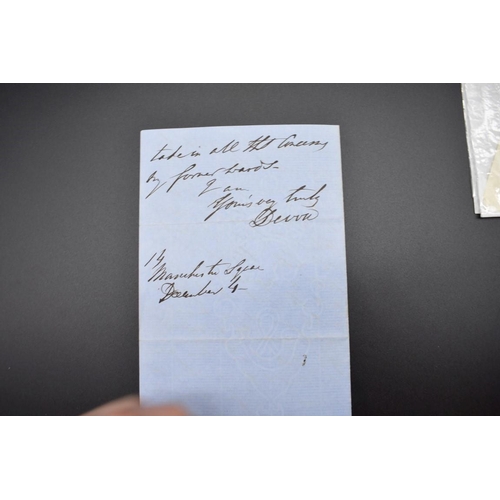 take in all that Concerns
my former wards -
I am
Yours very truly
Devon
14
Manchester Sqre
December 4